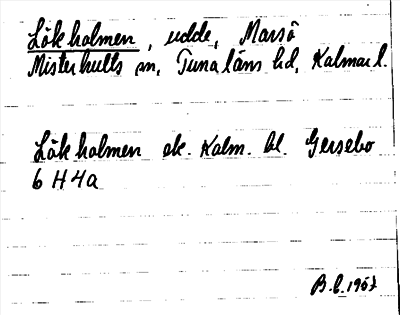 Lökholmen, udde, Marsö
Misterhults sn, Tunaläns hd, Kalmar l.
Lökholmen ek. Kalm. bl. Gersebo
6 H 4a
B.E. 1957